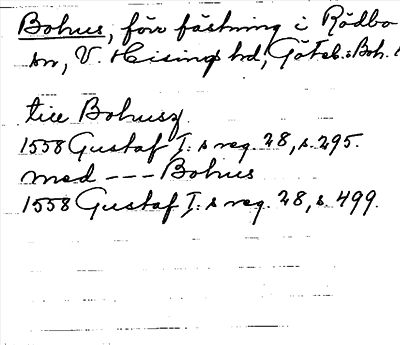 Bohus, förr fästning i Rödbo
sn, V. Hisings hd, Göteb. o. Boh.
till Bohusz
1558 Gustaf I:s reg. 28, s. 295.
med --- Bohus
1558 Gustaf I:s reg. 28, s. 499.